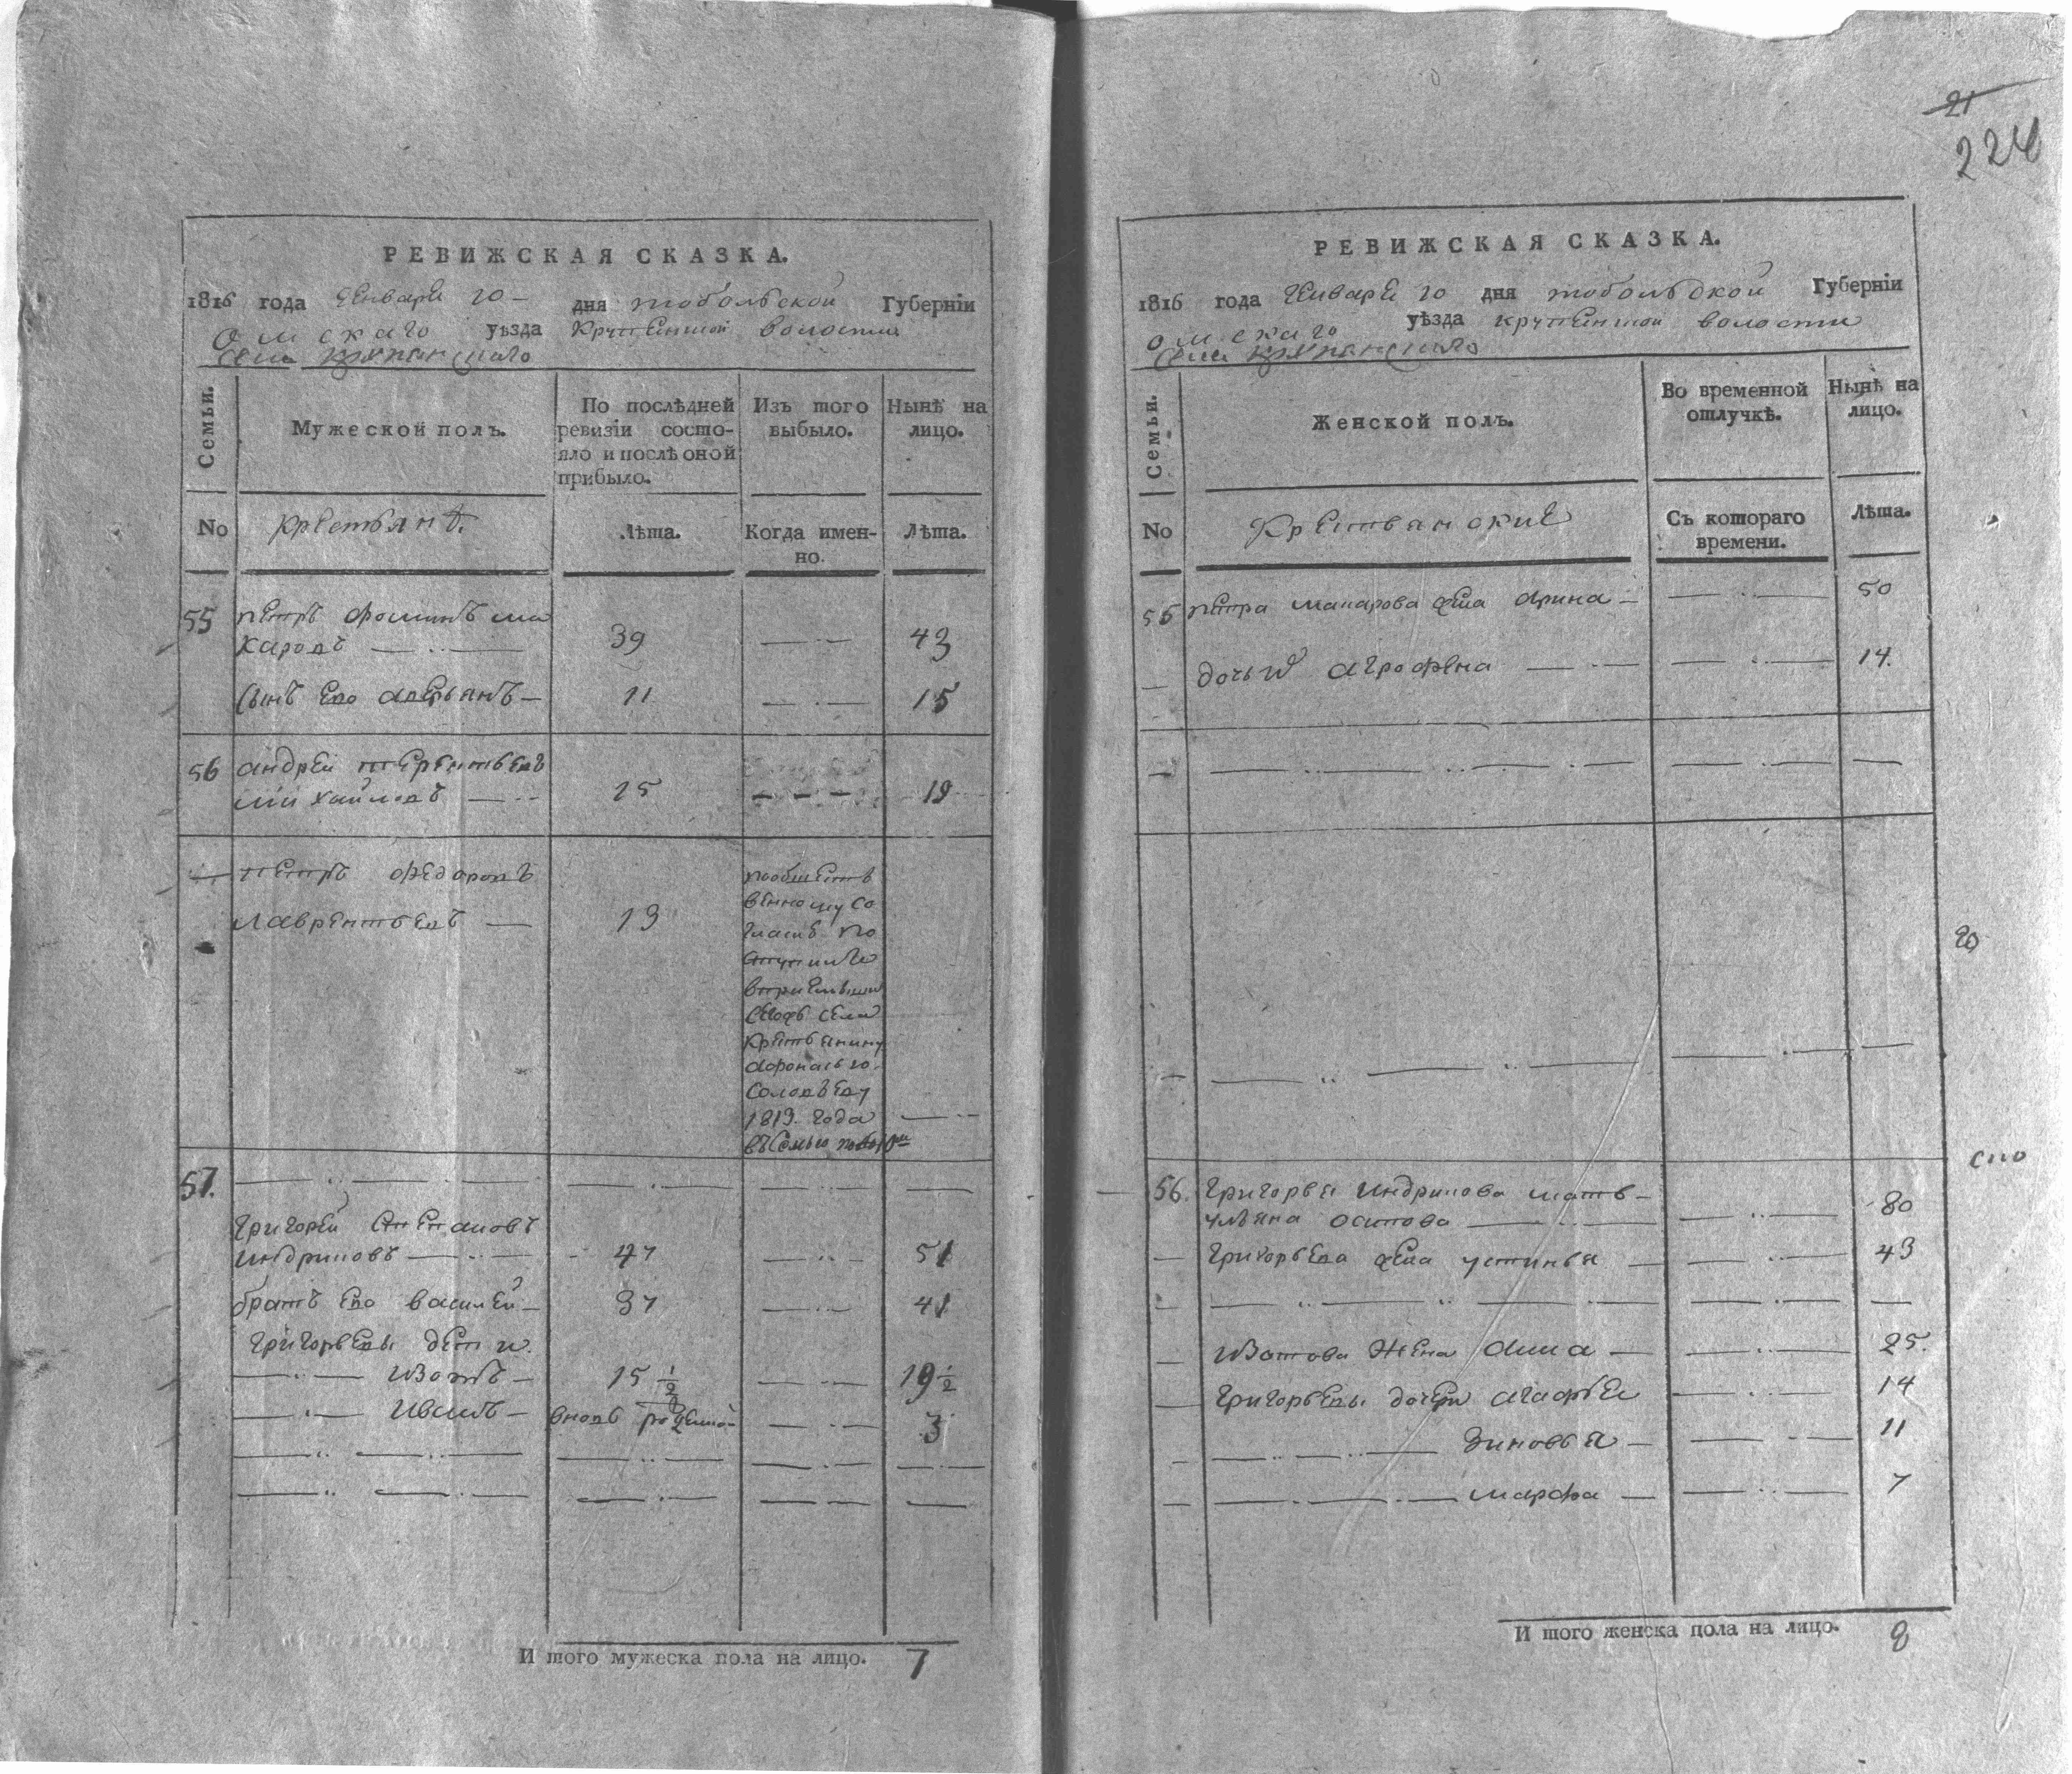 21
224
РЕВИЖСКАЯ СКАЗКА.
1816 года Генваря 10 дня тобольской Губерніи
омскаго уѣзда крупенской волости
села крупянскаго
Семьи.
Мужеской полъ.
По послѣдней ревизіи состояло и послѣ оной прибыло.
Изъ того выбыло.
Нынѣ на лицо.
No
крестьянѣ.
Лѣта.
Когда именно.
Лѣта.
55 петръ фоминъ ма
каровъ 39 43
сынъ ево аверьянъ 11 15
56 андрей терентьевъ
михайловъ 15 19
петръ федоровъ
лаврентьевъ 13
пообщест
венному со
гласию по
ступилъ
крестьянину
афонасью
Соловьеву
1813 года
въ семью
57.
григорей степановъ
индриковъ 47 51
братъ ево василей 37 41
григорьевы дети
изотъ 15 1/2 19 1/2
иванъ вновь рожденной 3
И того мужеска пола на лицо. 7
РЕВИЖСКАЯ СКАЗКА.
1816 года Генваря 10 дня тобольской Губерніи
омскаго уѣзда крупенской волости
села крупянскаго
Семьи.
Женской полъ.
Во временной отлучкѣ.
Нынѣ на лицо.
No
Крестьянские
Съ котораго времени.
Лѣта.
55 петра макарова жена арина 50
дочь агрофена 14.
56. григорья индрикова мать
ульяна осипова 80
григорьева жена устинья 43
изотова жена анна 25.
григорьевы дочери агафья 14
зиновья 11
марфа 7
И того женска пола на лицо. 8